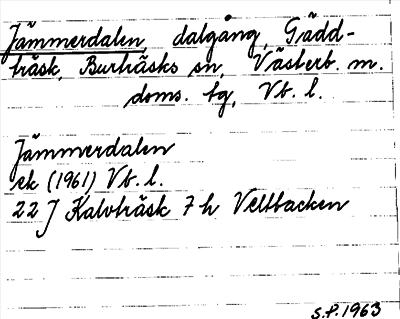 Jämmerdalen, dalgång, Gädd-
träsk, Burträsks sn, Västerb. m.
doms. tg, Vb. l.
Jämmerdalen
ek (1961) Vb. l.
22 J Kalvträsk 7 h Veltbacken
S.P. 1963